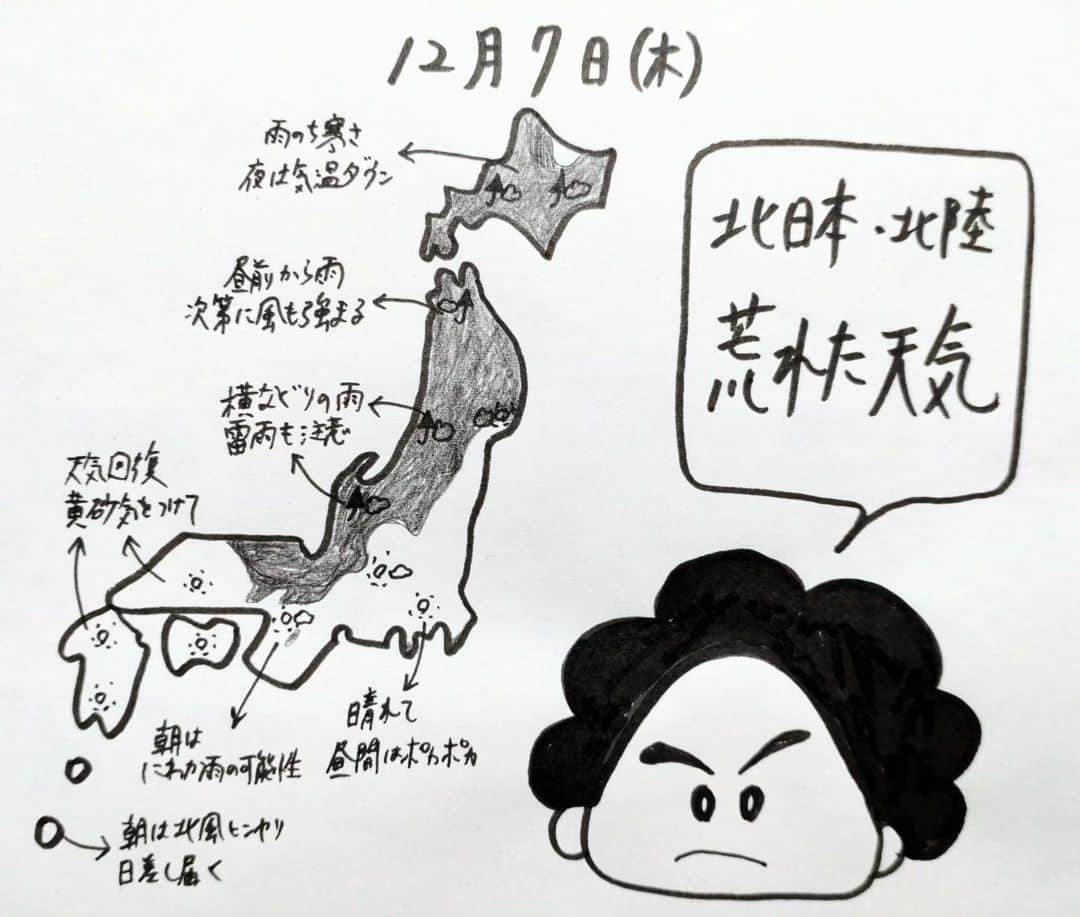 12月7日(木)
雨のち寒さ
夜は気温ダウン
昼前から雨
次第に風も強まる
横なぐりの雨
雷雨も注意
天気回復
黄砂気をつけて
朝は
にわか雨の可能性
晴れて
昼間はポカポカ
朝は北風ヒンヤリ
日差し届く
北日本・北陸
荒れた天気